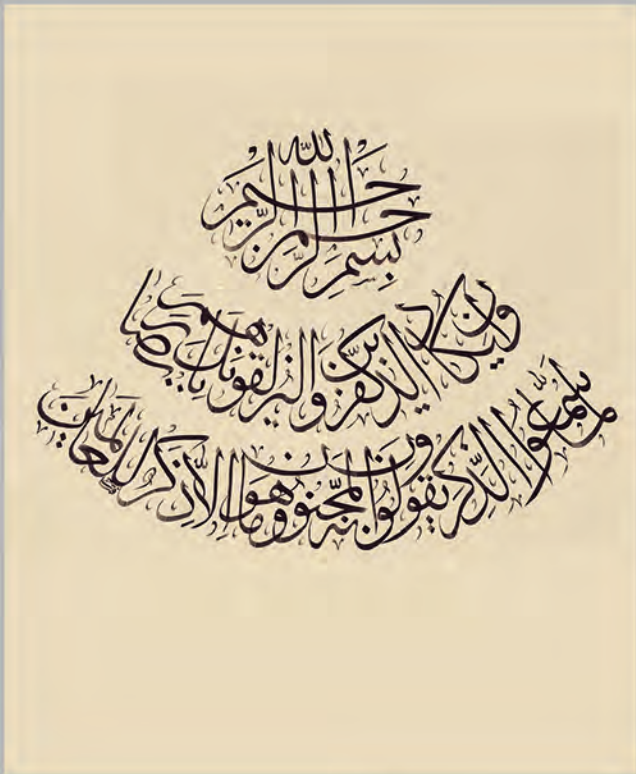 بِسْمِ اللّٰهِ الرَّحْمٰنِ الرَّحِيمِ
وان يكاد الذين كفروا ليزلقونك بابصارهم
لما سمعوا الذكر ويقولون انه لمجنون وما هو الا ذكر للعالمين